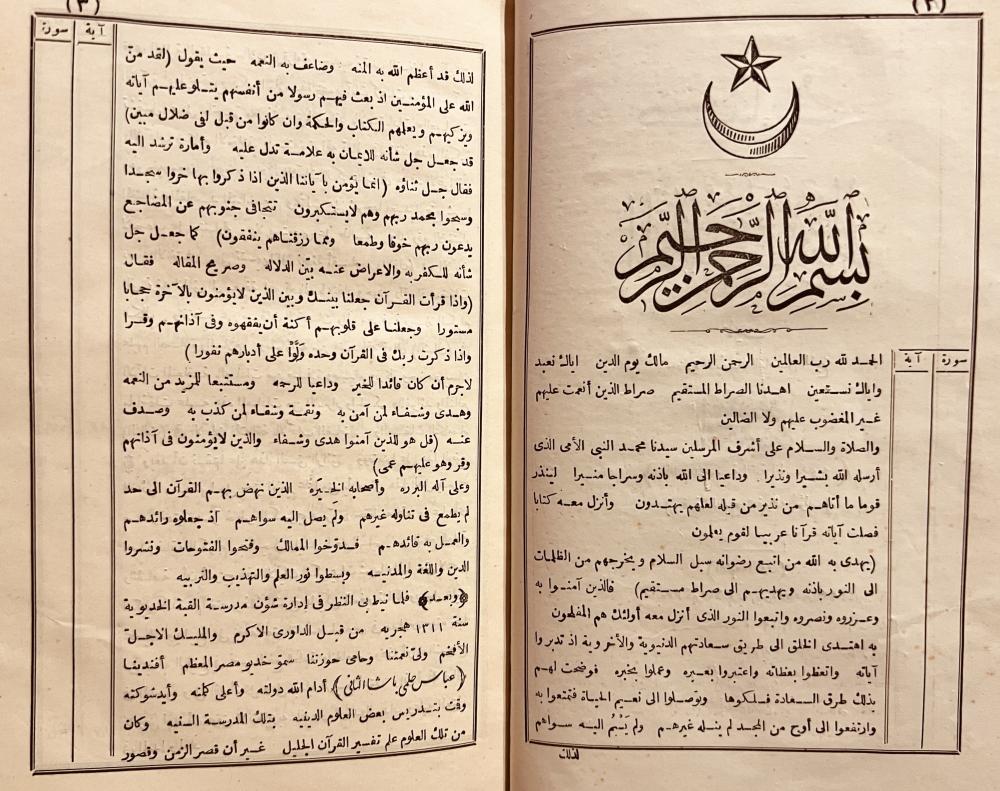 (٢)
بسم الله الرحمن الرحيم
سورة آية
الحمد لله رب العالمين الرحمن الرحيم مالك يوم الدين اياك نعبد
واياك نستعين اهدنا الصراط المستقيم صراط الذين أنعمت عليهم
غير المغضوب عليهم ولا الضالين
والصلاة والسلام على أشرف المرسلين سيدنا محمد النبي الأمى الذى
أرسله الله بشيرا ونذيرا وداعيا الى الله باذنه وسراجا منيرا لينذر
قوما ما أتاهم من نذير من قبله لعلهم يهتدون وأنزل معه كتابا
فصلت آياته قرآنا عربيا لقوم يعلمون
(يهدى به الله من اتبع رضوانه سبل السلام ويخرجهم من الظلمات
الى النور باذنه ويهديهم الى صراط مستقيم) فالذين آمنوا به
وعزروه ونصروه واتبعوا النور الذى أنزل معه أولئك هم المفلحون
به اهتدى الخلق الى طريق سعادتهم الدنيوية والأخروية اذ تدبروا
آياته واتعظوا بعظاته واعتبروا بعبره وعملوا بخبره فوضحت لهم
بذلك طرق السعادة فسلكوها وتوصلوا الى نعيم الحياة فتمتعوا به
وارتفعوا الى أوج من المجد لم ينله غيرهم ولم يَسْمُ اليه سواهم
لذلك
(٣)
آية سورة
لذلك قد أعظم الله به المنه وضاعف به النعمه حيث يقول (لقد منّ
الله على المؤمنين اذ بعث فيهم رسولا من أنفسهم يتلو عليهم آياته
ويزكيهم ويعلمهم الكتاب والحكمة وان كانوا من قبل لفى ضلال مبين)
قد جعل جل شأنه للايمان به علامة تدل عليه وأمارة ترشد اليه
فقال جل ثناؤه (انما يؤمن بآياتنا الذين اذا ذكروا بها خروا سجدا
وسبحوا بحمد ربهم وهم لايستكبرون تتجافى جنوبهم عن المضاجع
يدعون ربهم خوفا وطمعا ومما رزقناهم ينفقون) كما جعل جل
شأنه للكفر به والاعراض عنه بيّن الدلاله وصريح المقاله فقال
(واذا قرأت القرآن جعلنا بينك وبين الذين لايؤمنون بالآخرة حجابا
مستورا وجعلنا على قلوبهم أكنة أن يفقهوه وفى آذانهم وقرا
واذا ذكرت ربك فى القرآن وحده وَلَّوْا على أدبارهم نفورا)
لاجرم أن كان قائدا للخير وداعيا للرحمه ومستتبعا للمزيد من النعمه
وهدى وشفاء لمن آمن به ونقمة وشقاء لمن كذب به وصدف
عنه (قل هو للذين آمنوا هدى وشفاء والذين لايؤمنون فى آذانهم
وقر وهو عليهم عمى)
وعلى آله البرره وأصحابه الخِيَرَة الذين نهض بهم القرآن الى حد
لم يطمع فى تناوله غيرهم ولم يصل اليه سواهم اذ جعلوه رائدهم
والعمل به قائدهم فدوّخوا الممالك وفتحوا الفتوحات ونشروا
الدين واللغة والمدنيه وبسطوا نور العلم والتهذيب والتربيه
(وبعد) فلما نيط بى النظر فى إدارة شؤن مدرسة القبة الخديوية
سنة ١٣١١ هجريه من قبل الداورى الاكرم والمليك الاجل
الأفخم ولىّ نعمتنا وحامى حوزتنا سمو خديو مصر المعظم أفندينا
(عباس حلمى باشا الثانى) أدام الله دولته وأعلى كلمته وأيد شوكته
وقت بتدريس بعض العلوم الدينيه بتلك المدرسة السنيه وكان
من تلك العلوم علم تفسير القرآن الجليل غير أن قصر الزمن وقصور